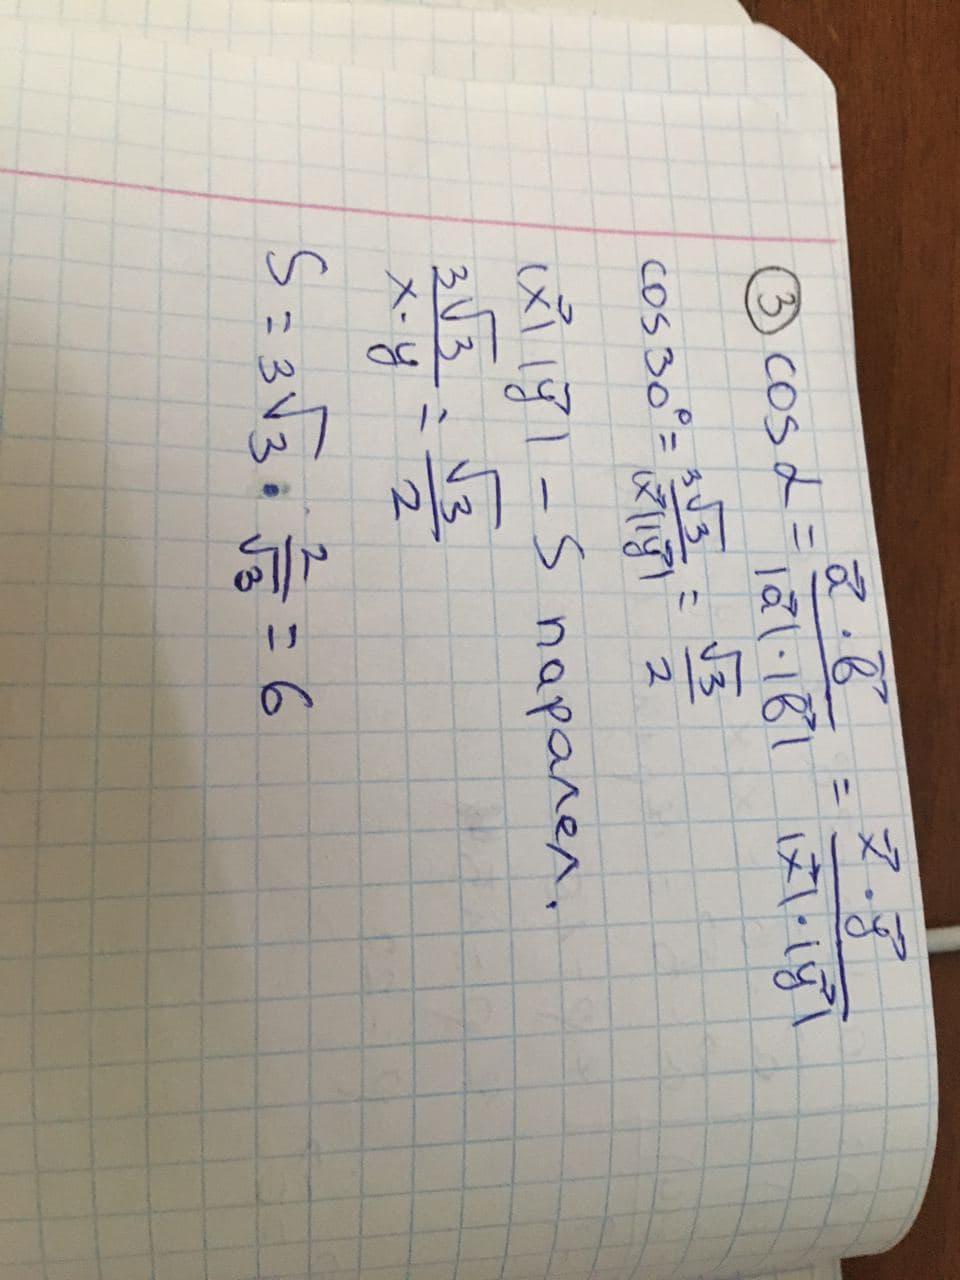 ③ cos α = (a⃗ · b⃗)/(|a⃗| · |b⃗|) = (x⃗ · y⃗)/(|x⃗| · |y⃗|)
cos 30° = 3√3/(|x⃗| |y⃗|) = √3/2
|x⃗| |y⃗| – S паралел.
3√3/(x · y) = √3/2
S = 3√3 · 2/√3 = 6